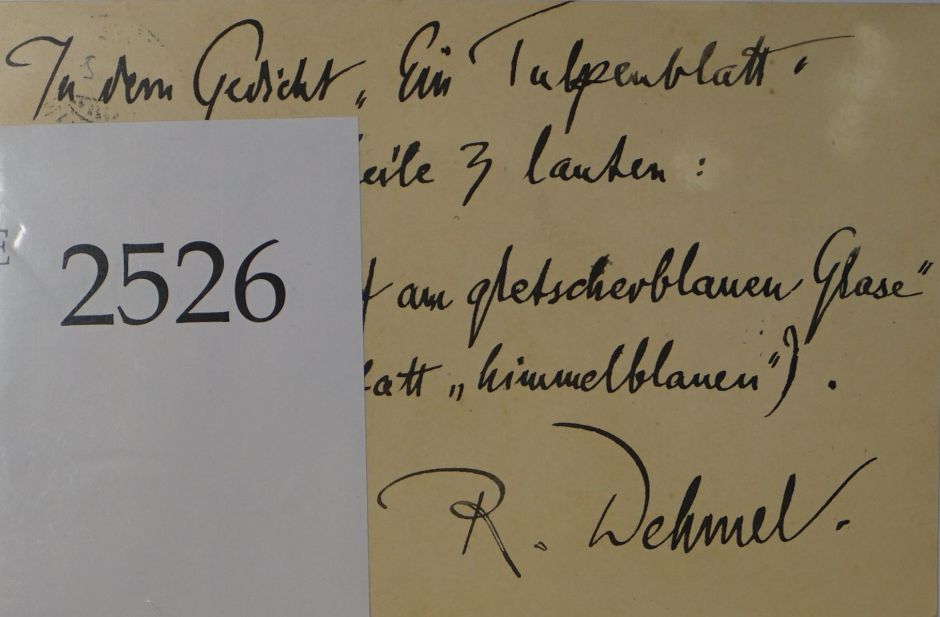 In dem Gedicht „Ein Tulpenblatt"
eile 3 lauten :
2526
am gletscherblauen Glase"
att „himmelblauen").
R. Dehmel.